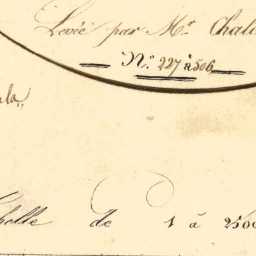 Levée par Mr. Chal
No. 227 à 506
la,
helle de 1 à 2500